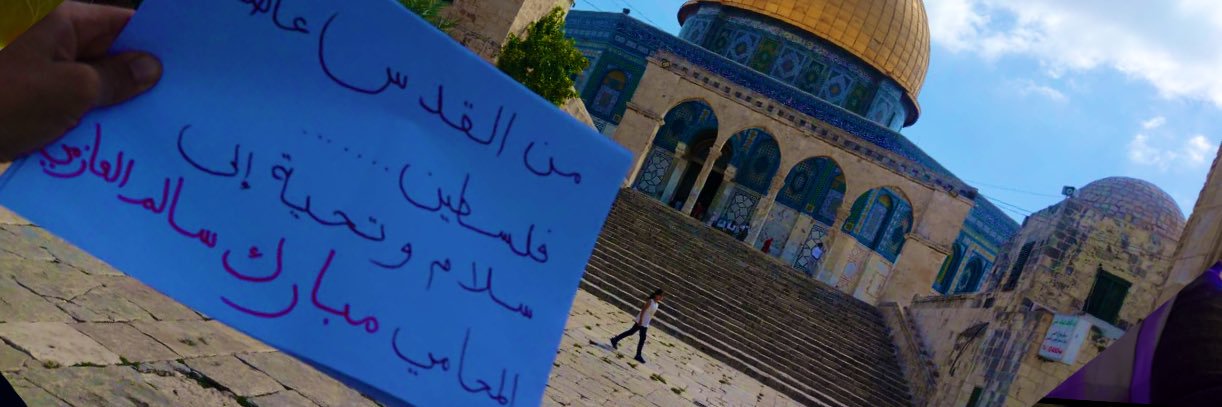 من القدس
فلسطين......
سلام وتحية إلى
المحامي مبارك سالم العازمي